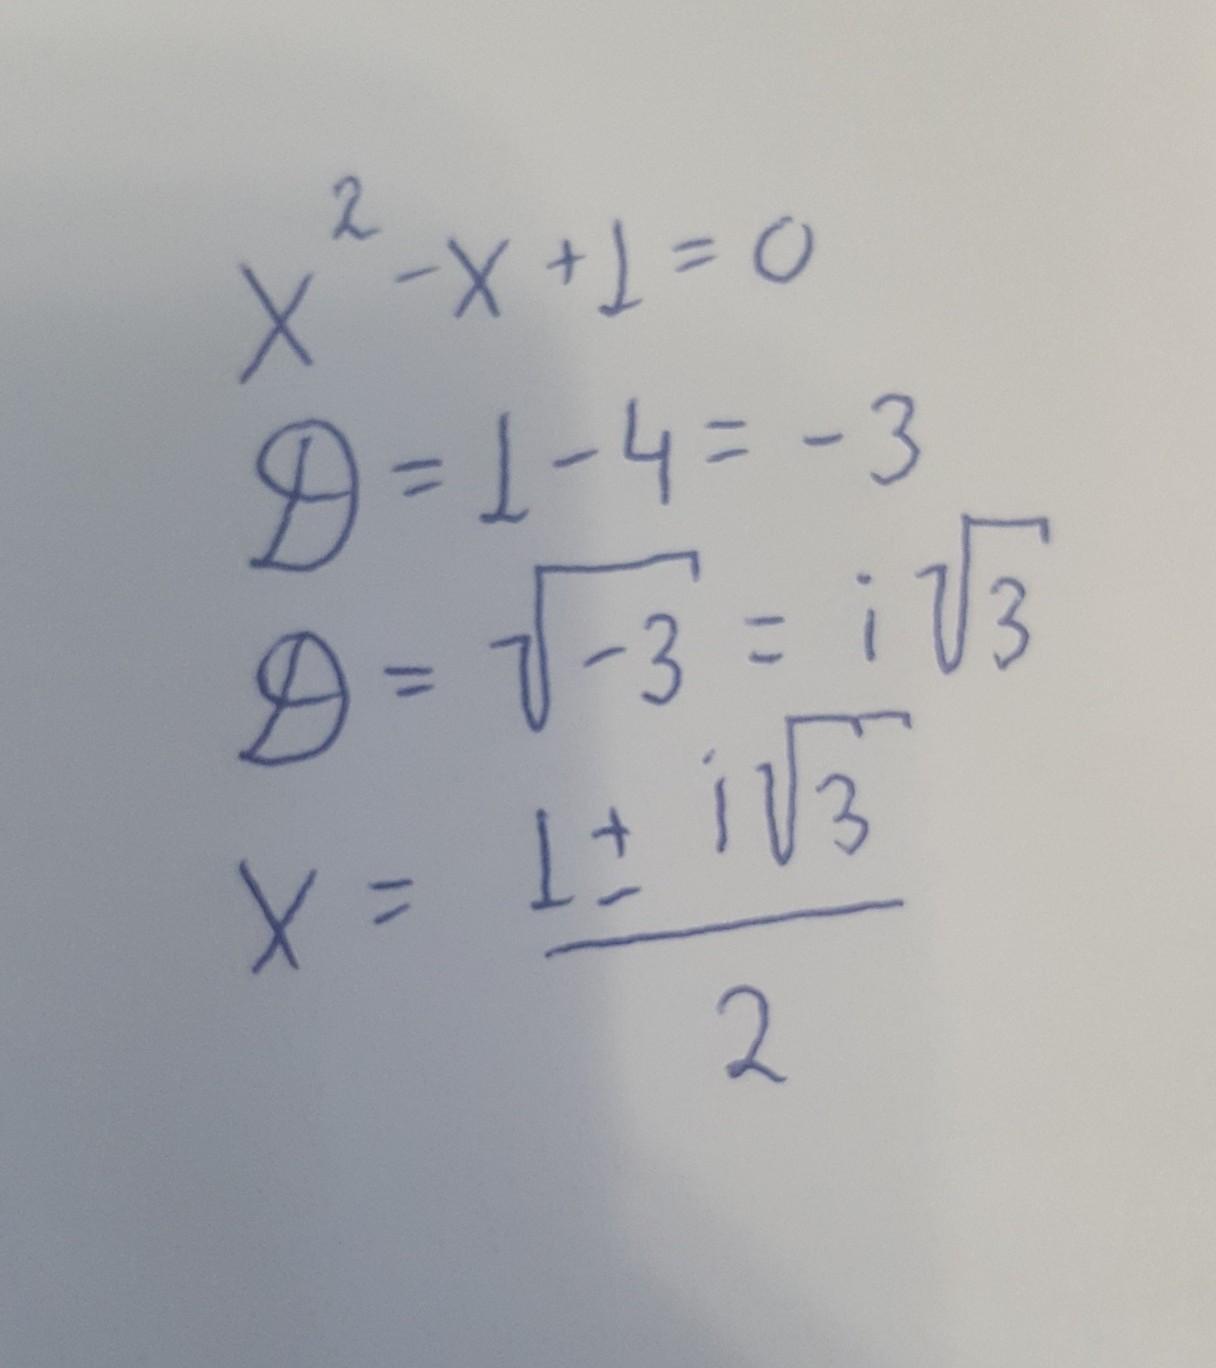 x² - x + 1 = 0
D = 1 - 4 = - 3
D = √-3 = i √3
x = (1 ± i√3) / 2